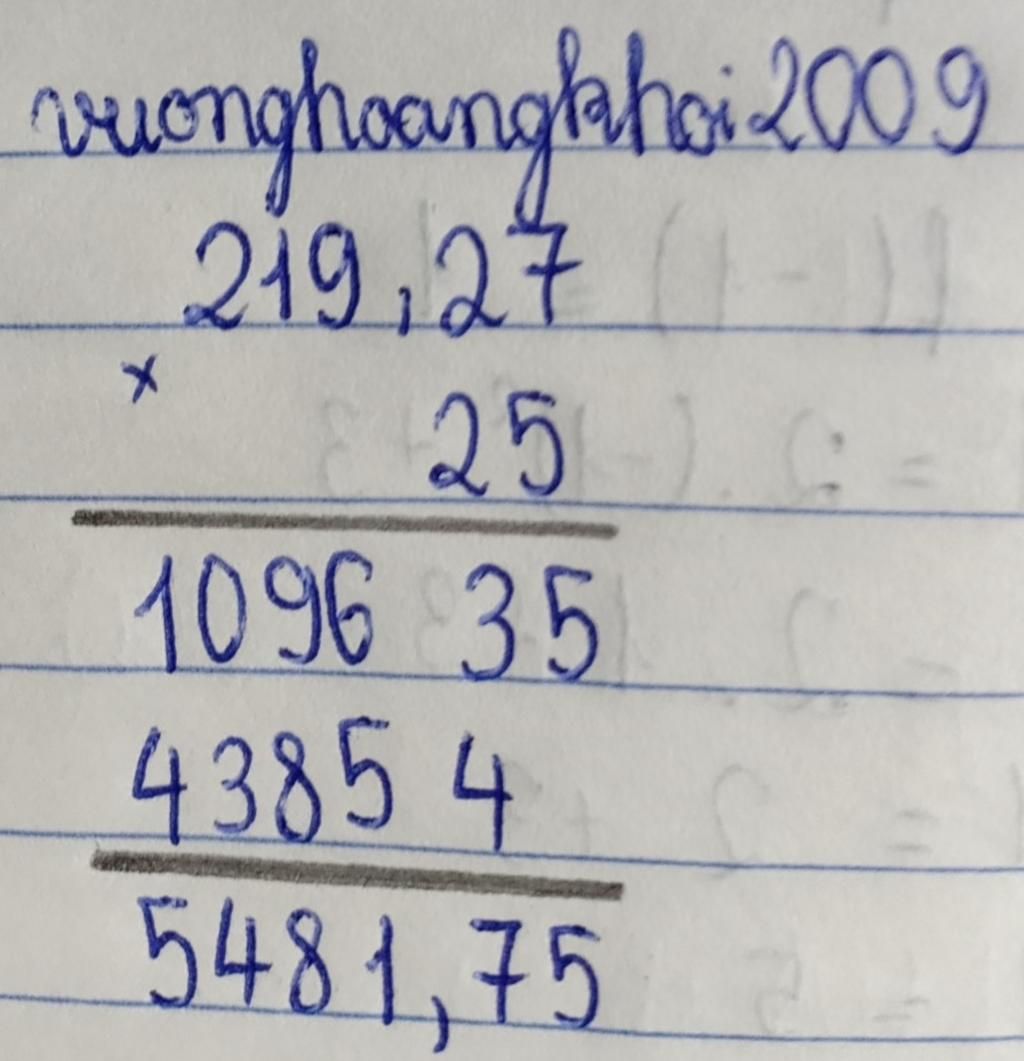 vuonghoangkhoi2009
219,27
×
25
1096 35
4385 4
5481,75